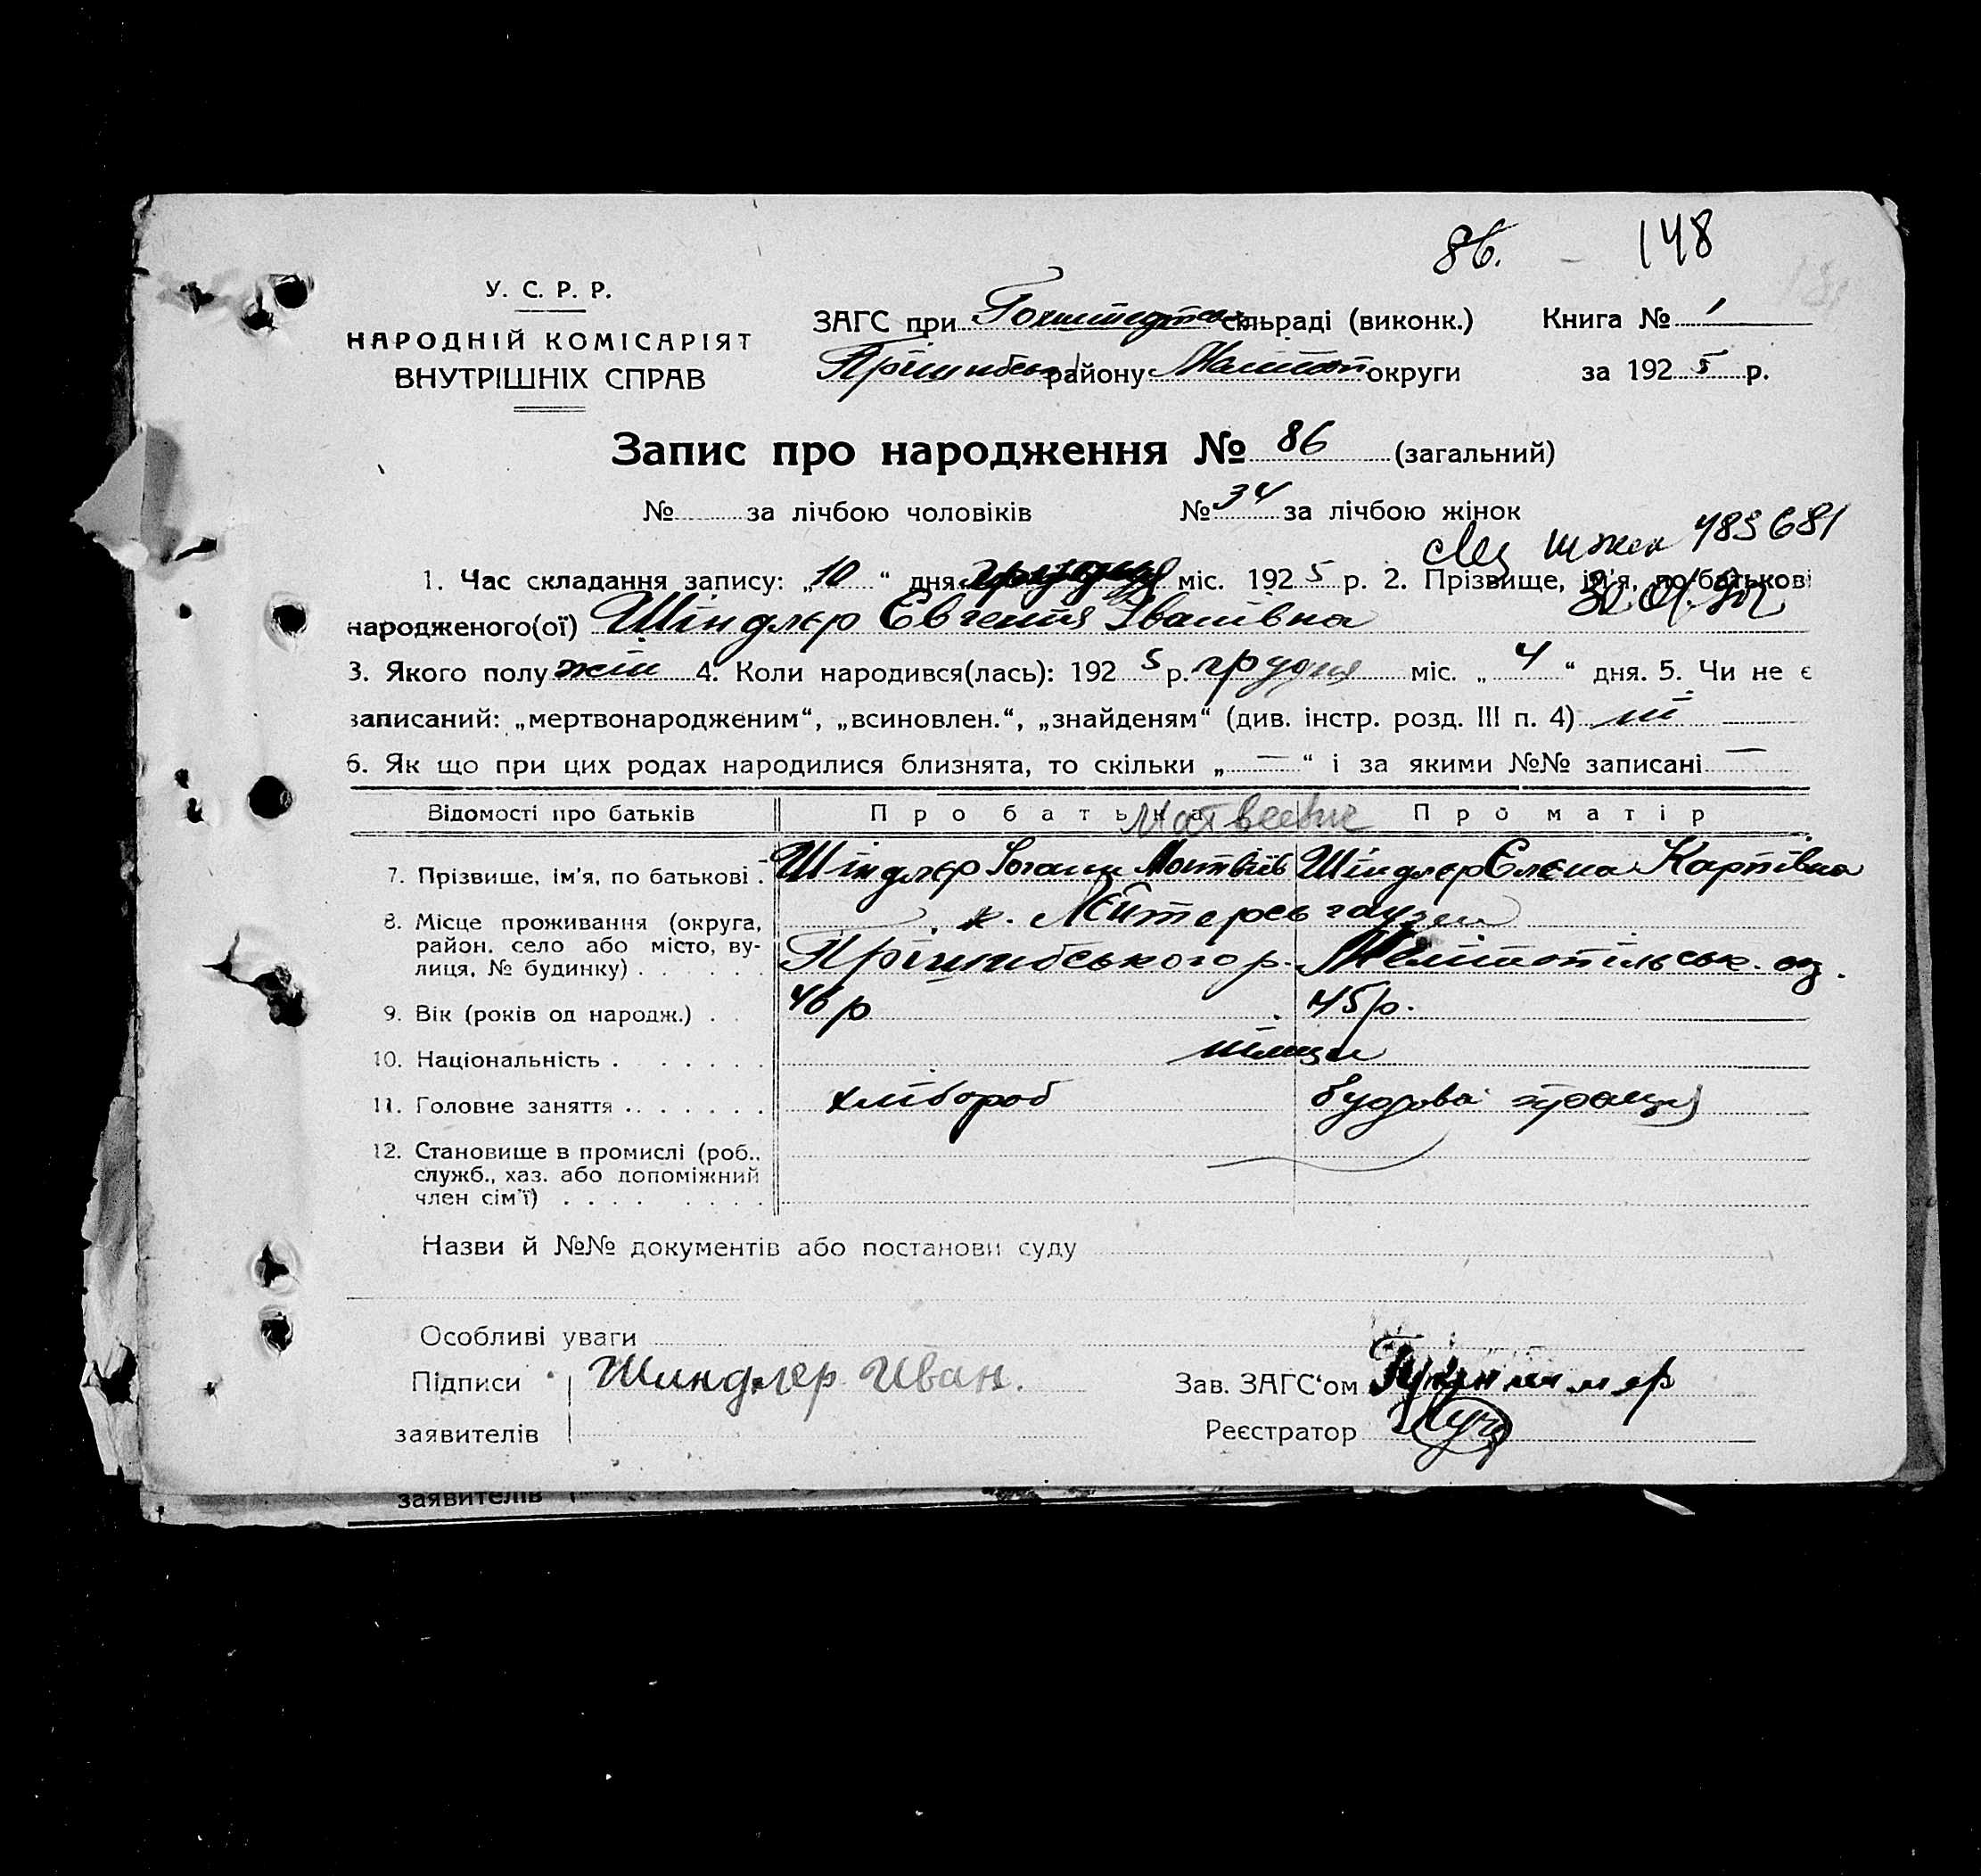 86. - 148
У. С. Р. Р.
НАРОДНІЙ КОМІСАРІЯТ
ВНУТРІШНІХ СПРАВ
ЗАГС при Гохштедтск сільраді (виконк.) Книга № 1
Прішибськ району Мелітоп округи за 1925 р.
Запис про народження № 86 (загальний)
№ за лічбою чоловіків № 34 за лічбою жінок
485681
1. Час складання запису: „10“ дня грудня міс. 1925 р. 2. Прізвище, ім'я, по батькові
народженого(ої) Шіндлєр Євгенія Іванівна
3. Якого полу жін 4. Коли народився(лась): 1925 р. грудня міс. „4“ дня. 5. Чи не є
записаний: „мертвонародженим“, „всиновлен.“, „знайденям“ (див. інстр. розд. III п. 4) ні
6. Як що при цих родах народилися близнята, то скільки „—“ і за якими №№ записані —
Відомості про батьків Про батька Про матір
Матвеевич
7. Прізвище, ім'я, по батькові Шіндлєр Іоганн Матвіїв Шіндлєр Єлєна Карпівна
8. Місце проживання (округа, район, село або місто, ву-лиця, № будинку) к. Лєйтерсьгаузен
Прішибського р. Мелітопільськ. ок.
9. Вік (років од народж.) 46 р 45 р.
10. Національність німци
11. Головне заняття хлібороб
12. Становище в промислі (роб., служб., хаз. або допоміжний член сім'ї)
Назви й №№ документів або постанови суду
Особливі уваги
Підписи Шиндлер Иван. Зав. ЗАГС‘ом
заявителів Реєстратор
заявителів